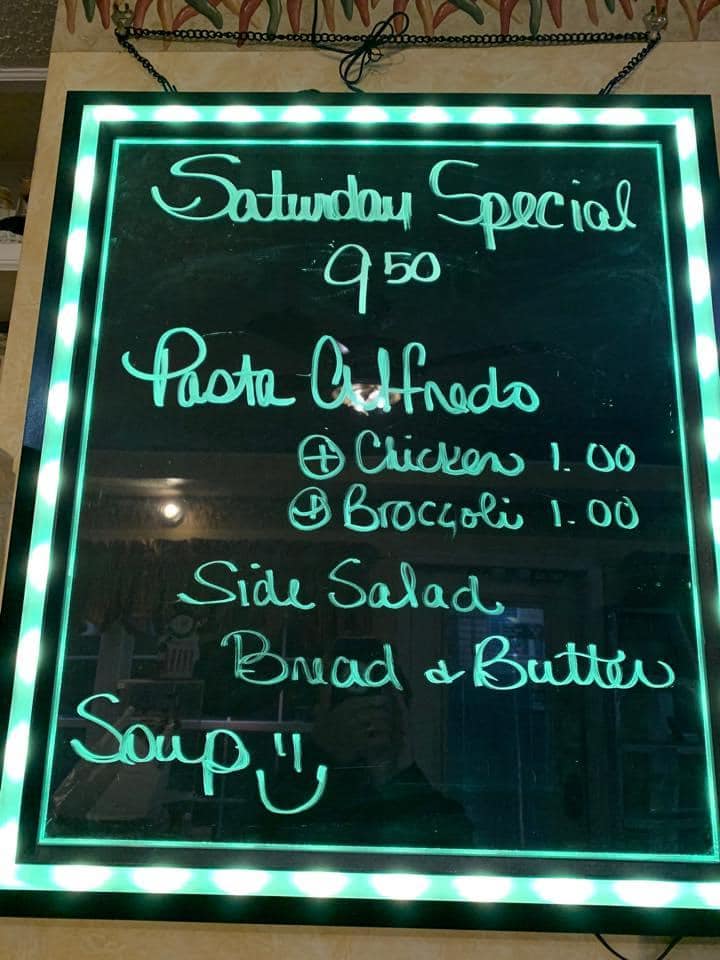 Saturday Special
9 50
Pasta Alfredo
+ Chicken 1.00
+ Broccoli 1.00
Side Salad
Bread & Butter
Soup